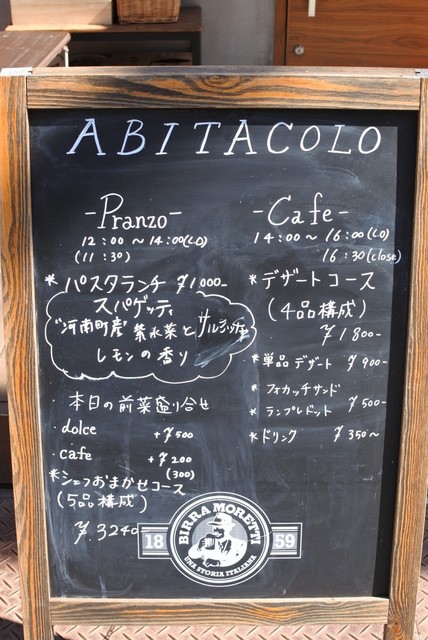 ABITACOLO
-Pranzo-
12:00~14:00(LO)
(11:30)
* パスタランチ ¥1000-
スパゲッティ
"河南町産"紫水菜とサルシッチャ
レモンの香り
・本日の前菜盛り合せ
・dolce +¥500
・cafe +¥200
(300)
*シェフおまかせコース
(5品構成)
¥3240-
-Cafe-
14:00~16:00(LO)
16:30(close)
*デザートコース
(4品構成)
¥1800-
*単品デザート ¥900-
*フォカッチャサンド
*ランプレドット ¥500-
*ドリンク ¥350~
BIRRA MORETTI
18 59
UNA STORIA ITALIANA